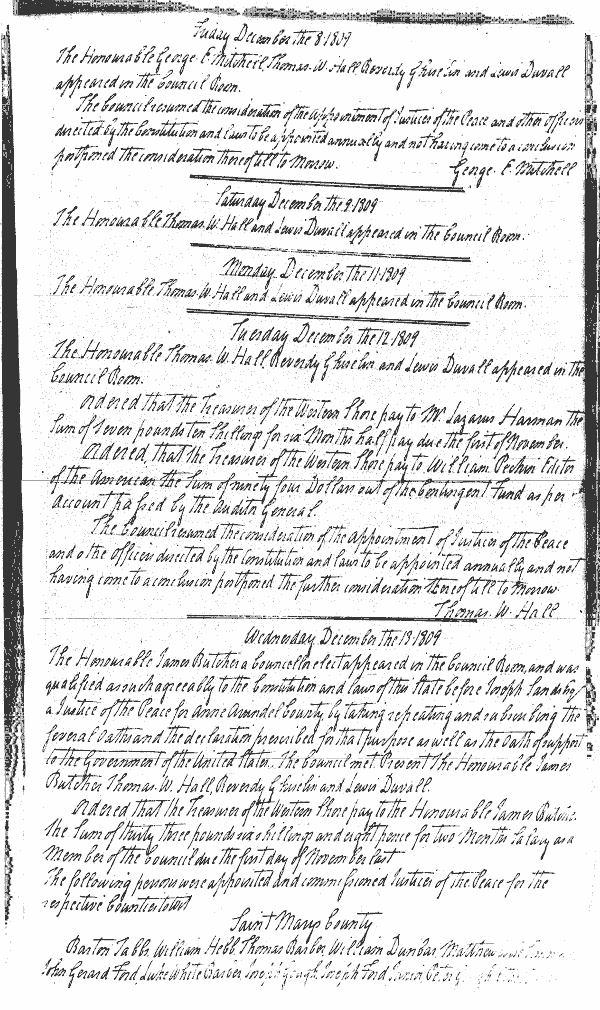 Friday December the 8. 1809
The Honourable George. E. Mitchell, Thomas. W. Hall Reverdy Ghiselin and Lewis Duvall
appeared in the Council Room.
The Council resumed the consideration of the appointment of Justices of the Peace and other officers
directed by the Constitution and Laws to be appointed annually and not having come to a conclusion
postponed the consideration thereof till to Morrow.
George. E. Mitchell
Saturday December the 9. 1809
The Honourable Thomas. W. Hall and Lewis Duvall appeared in the Council Room.
Monday December the 11. 1809
The Honourable Thomas. W. Hall and Lewis Duvall appeared in the Council Room.
Tuesday December the 12. 1809
The Honourable Thomas. W. Hall, Reverdy Ghiselin and Lewis Duvall appeared in the
Council Room.
Ordered that the Treasurer of the Western Shore pay to Mr. Lazarus Harman the
Sum of Seven pounds ten Shillings for six Months half pay due the first of November.
Ordered, that the Treasurer of the Western Shore pay to William Pechin Editor
of the American the Sum of ninety four Dollars out of the Contingent Fund as per
Account passed by the Auditor General.
The Council resumed the consideration of the appointment of Justices of the Peace
and other officers directed by the Constitution and Laws to be appointed annually and not
having come to a conclusion postponed the further consideration thereof till to Morrow
Thomas. W. Hall
Wednesday December the 13. 1809
The Honourable James Butcher a Councellor elect appeared in the Council Room, and was
qualified as such agreeably to the Constitution and Laws of this State before Joseph Sands Esqr
a Justice of the Peace for Anne Arundel County by taking repeating and subscribing the
several Oaths and the declaration prescribed for that purpose as well as the Oath of support
to the Government of the United States. The Council met. Present The Honourable James
Butcher Thomas. W. Hall, Reverdy Ghiselin and Lewis Duvall.
Ordered that the Treasurer of the Western Shore pay to the Honourable James Butcher
the Sum of thirty three pounds six shillings and eight pence for two Months Salary as a
Member of the Council due the first day of November last
The following persons were appointed and commissioned Justices of the Peace for the
respective Counties towit
Saint Marys County
Barton Tabbs, William Hebb, Thomas Barber, William Dunbar Matthew
John Gerard Ford, Luke White Barber Joseph Gough, Joseph Ford Junior Peter